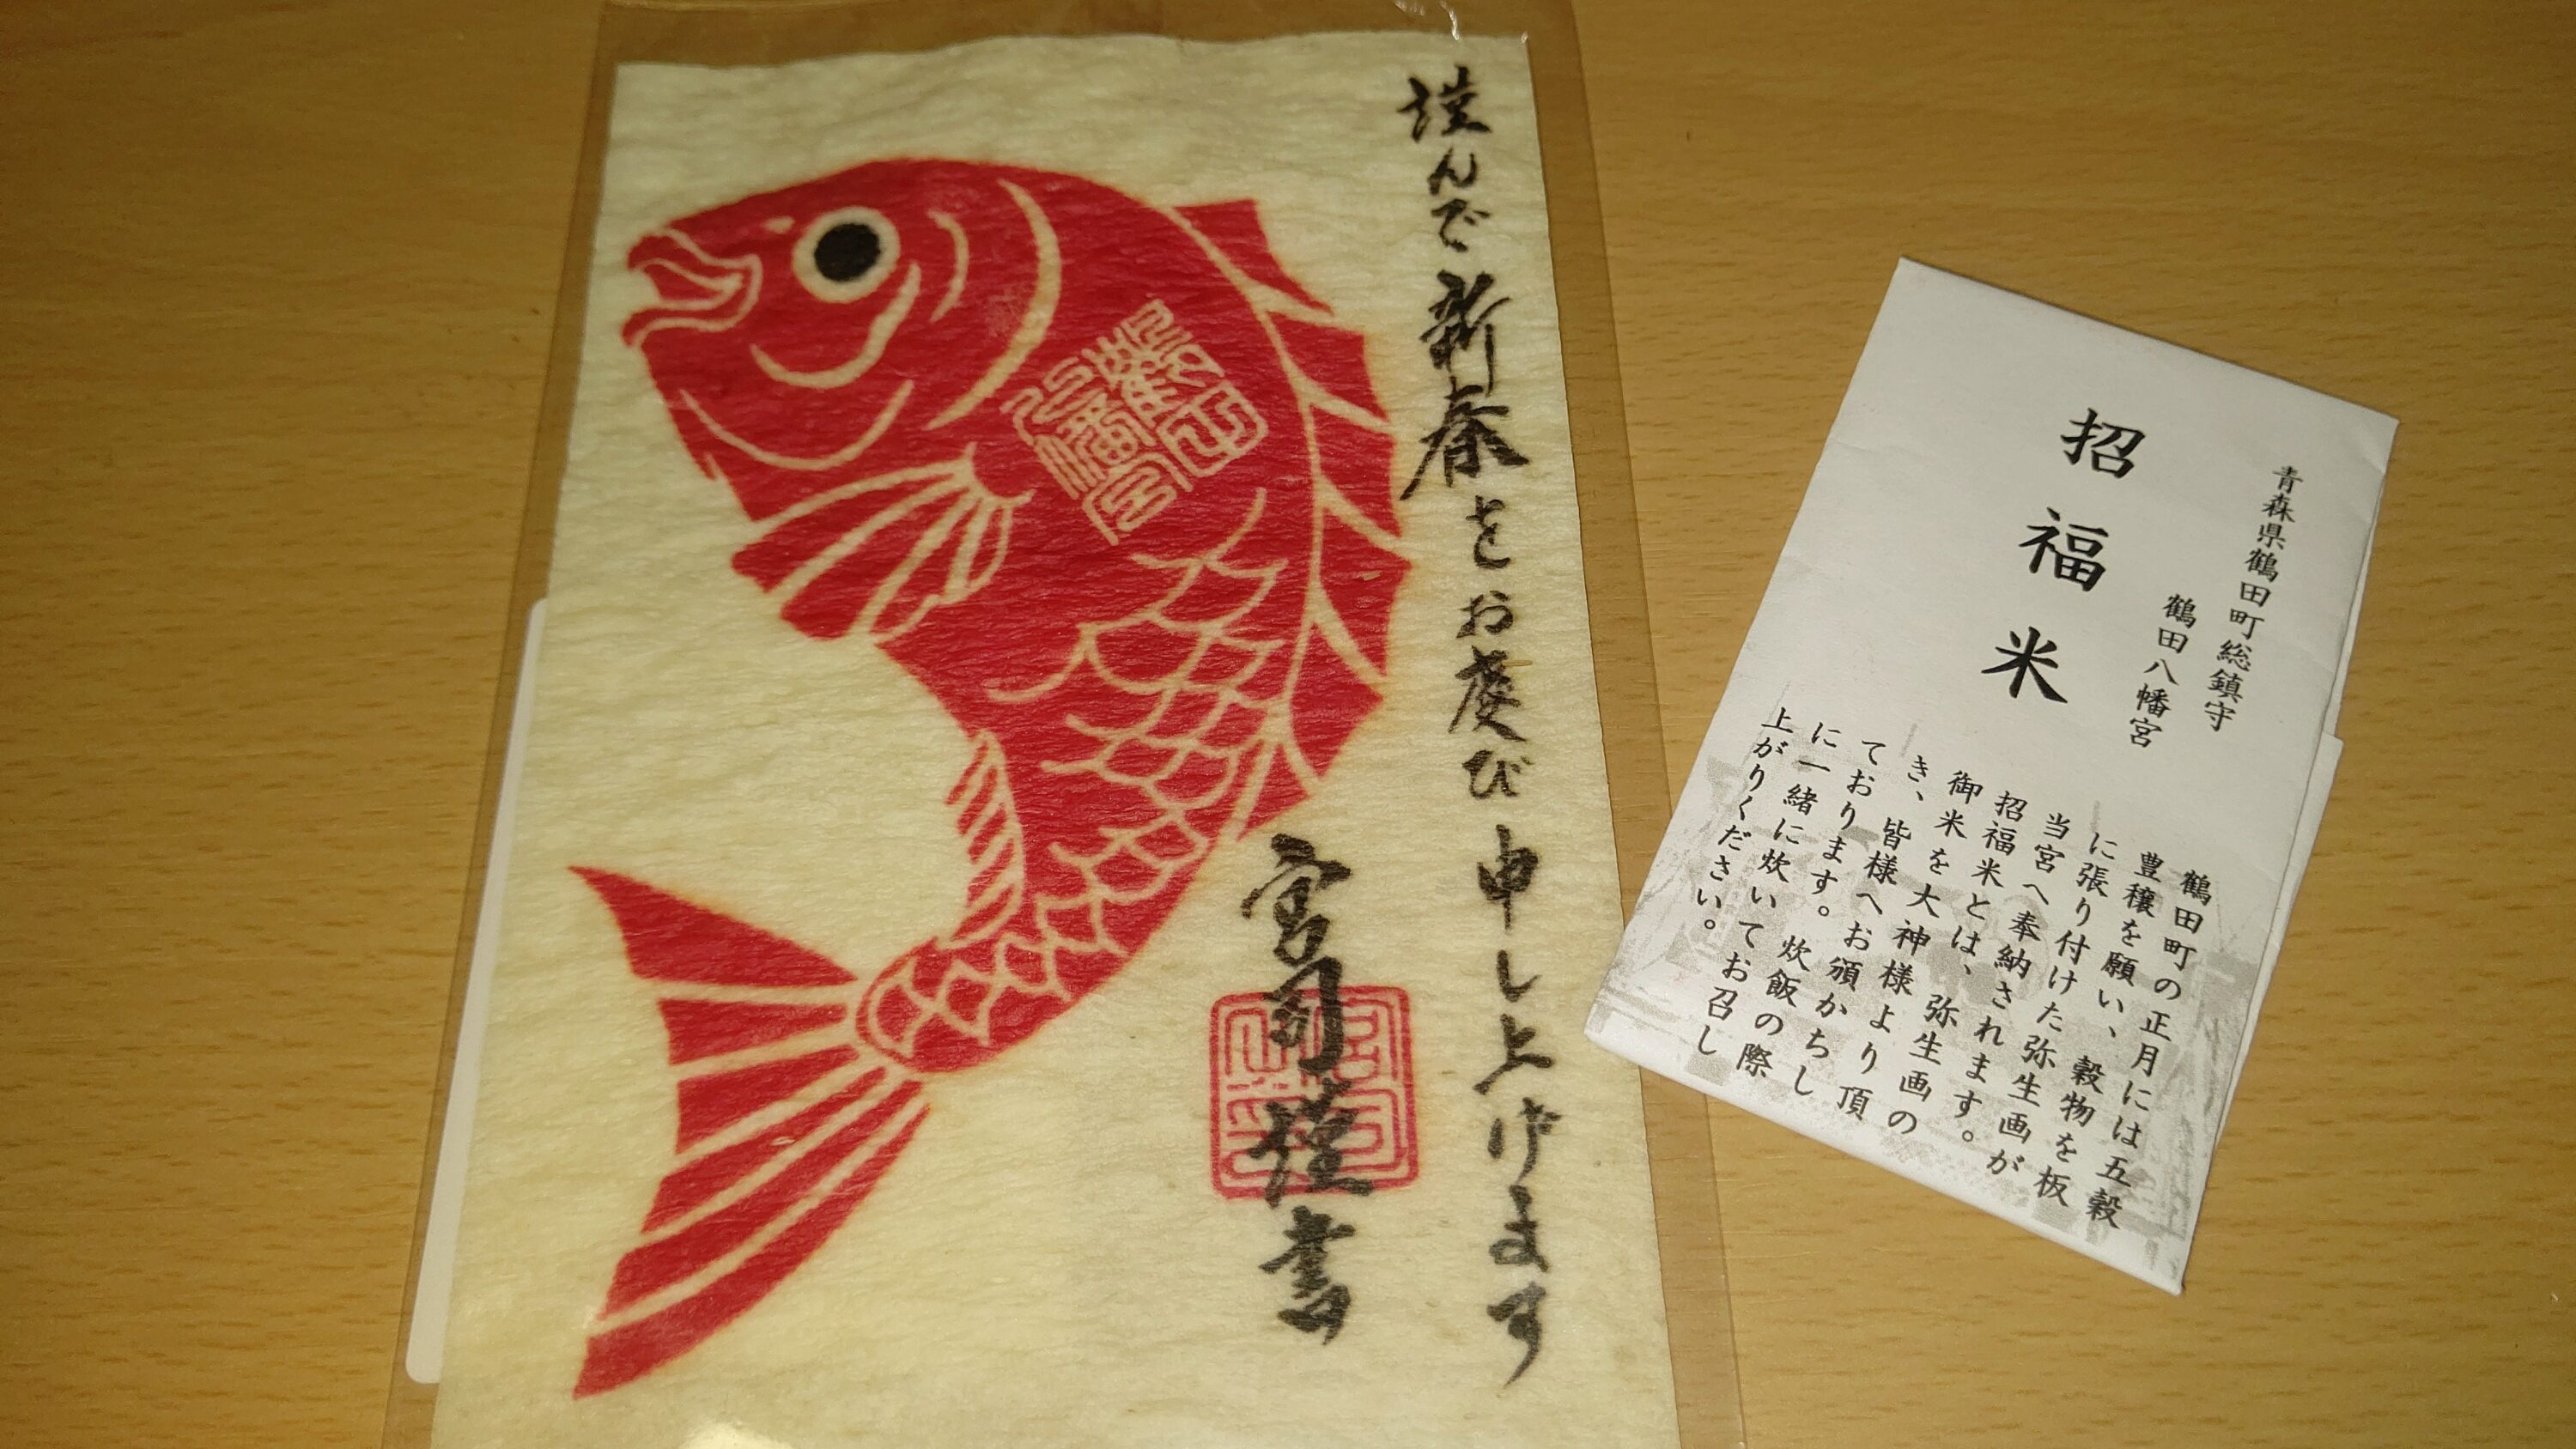 謹んで新春をお慶び申し上げます
宮司謹書
鶴田
八幡宮
青森県鶴田町総鎮守
鶴田八幡宮
招福米
鶴田町の正月には五穀
豊穣を願い、穀物を板
に張り付けた弥生画が
当宮へ奉納されます。
招福米とは、弥生画の
御米を大神様より頂
き、皆様へお頒かちし
ております。炊飯の際
に一緒に炊いてお召し
上がりください。